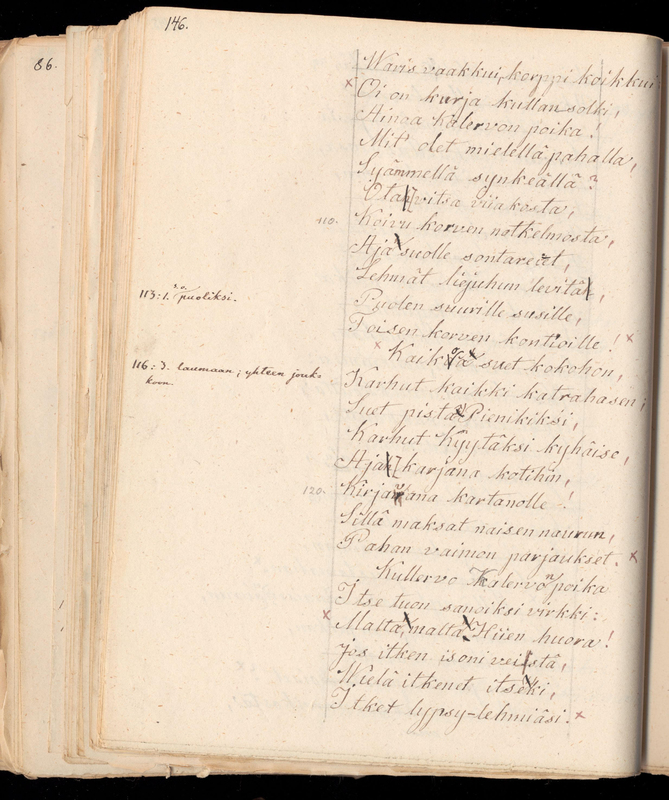 146.
86.
Waris vaakkui, korppi koikkui
Oi on kurja kullan solki,
Ainoa Kalervon poika!
Mit' olet mielellä pahalla,
Syämmellä synkeällä?
Ota witsa viiakosta,
110.
Koivu korven notkelmosta,
Ajä suolle sontareiet,
Lehmät liejuhun levitä,
113: 1. puoliksi.
Puolen suurille susille,
Toisen korven kontioille!
Kaikki suet kokohon,
116: 3. laumaan; yhteen jouk-
koon.
Karhut kaikki katrahasen;
Suet pistä Pienikiksi,
Karhut Kyytäksi kyhäise,
Aja karjana kotihin,
120.
Kirjavana kartanolle!
Sillä maksat naisen naurun,
Pahan vaimon parjaukset.
Kullervo Kalervon poika
Itse tuon sanoiksi virkki:
Malta, malta Hiien huora!
Jos itken isoni veistä,
Wielä itkenet itseki,
Itket lypsy-lehmiäsi.